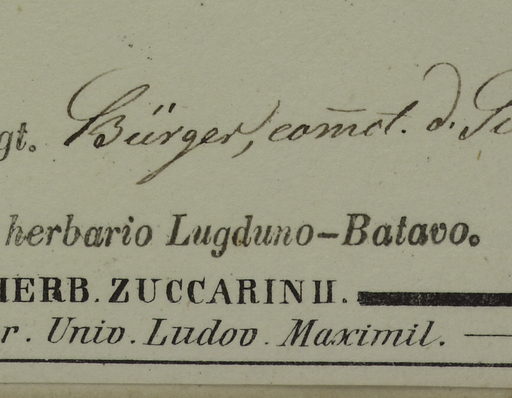 gt. Bürger, com̄ct. d.
herbario Lugduno-Batavo.
HERB. ZUCCARINII.
r. Univ. Ludov. Maximil.